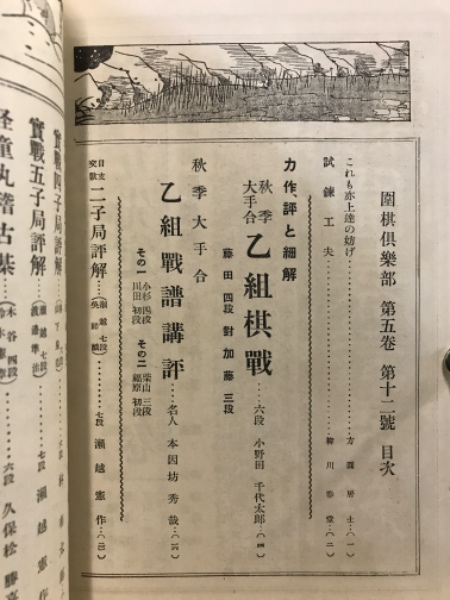 圍棋俱樂部 第五卷 第十二號 目次
これも亦上達の妨げ…方圓居士…(一)
試鍊工夫…柳川春堂…(二)
力作、評と細解
秋季大手合 乙組棋戰…六段 小野田千代太郎…(四)
藤田四段對加藤三段
秋季大手合
乙組戰譜講評…名人 本因坊秀哉…(一六)
その一 小杉四段 川田初段
その二 柴山三段 福原初段
日支交歡 二子局評解…七段 瀨越憲作…(二〇)
實戰五子局評解…七段 瀨越憲作
怪童丸稽古棊…木谷四段…六段 久保松勝喜